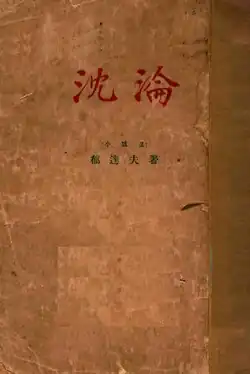 沈淪
(小說集)
郁達夫著